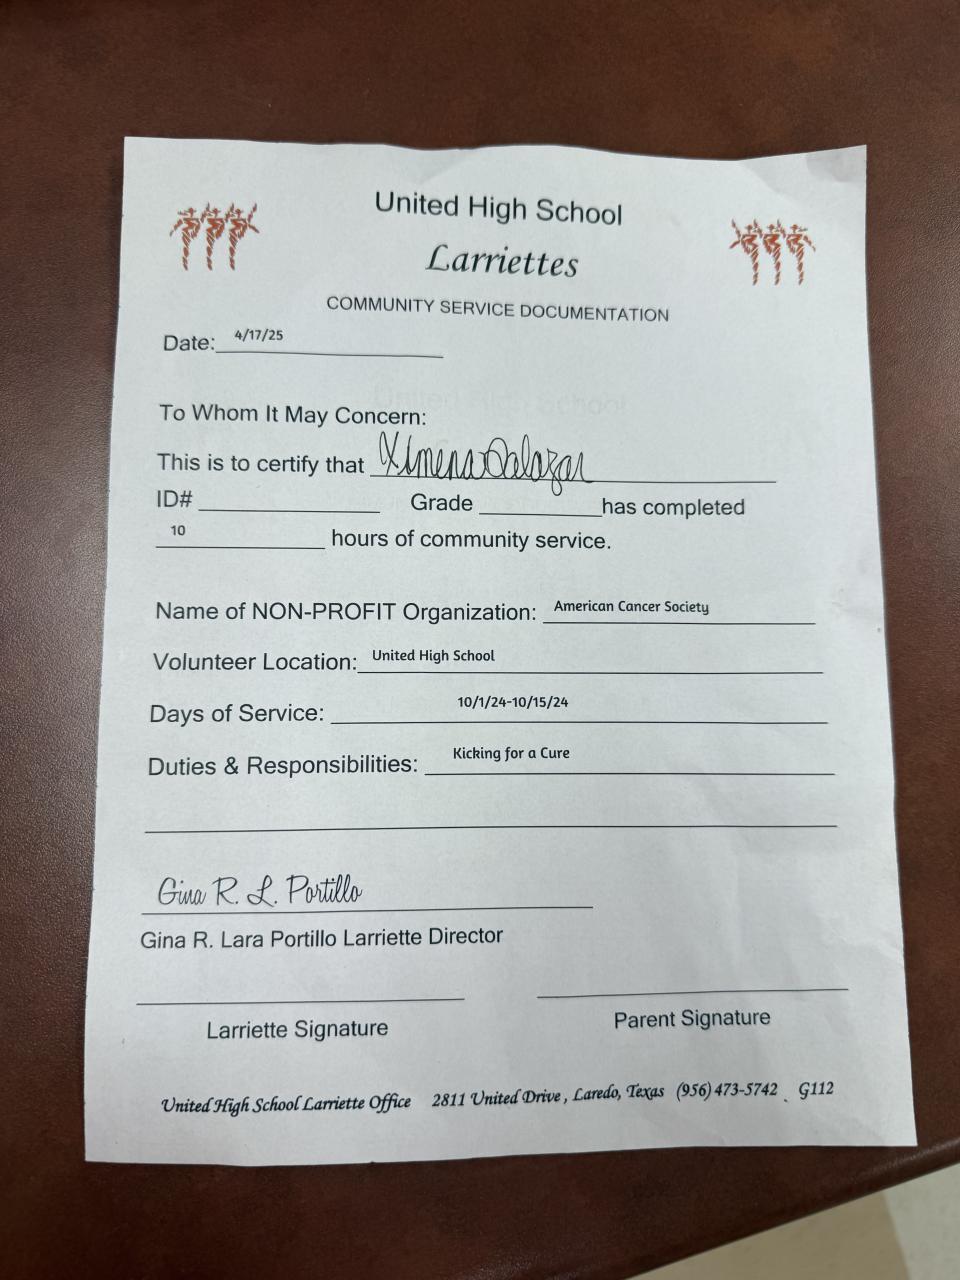 United High School
Larriettes
COMMUNITY SERVICE DOCUMENTATION
Date: 4/17/25
To Whom It May Concern:
This is to certify that Ximena Salazar
ID# Grade has completed
10 hours of community service.
Name of NON-PROFIT Organization: American Cancer Society
Volunteer Location: United High School
Days of Service: 10/1/24-10/15/24
Duties & Responsibilities: Kicking for a Cure
Gina R. L. Portillo
Gina R. Lara Portillo Larriette Director
Larriette Signature Parent Signature
United High School Larriette Office 2811 United Drive, Laredo, Texas (956) 473-5742 . G112